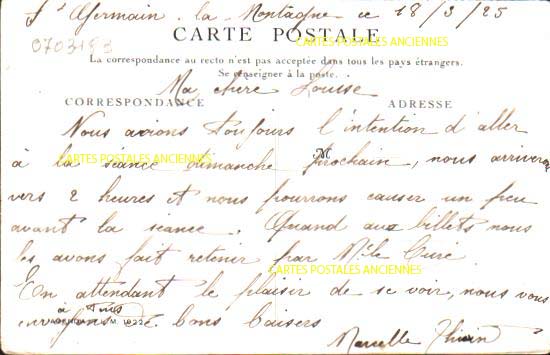 St Germain la Montagne ce 18/3/25
0703193
CARTE POSTALE
CARTES POSTALES ANCIENNES
La correspondance au recto n'est pas acceptée dans tous les pays étrangers.
Se renseigner à la poste.
Ma chère Louise
CORRESPONDANCE
ADRESSE
Nous avions toujours l'intention d'aller
CARTES POSTALES ANCIENNES
M
à la séance dimanche prochain, nous arriverons
vers 2 heures et nous pourrons causer un peu
avant la séance. Quand aux billets nous
les avons fait retenir par Mr le Curé
CARTES POSTALES ANCIENNES
En attendant le plaisir de se voir, nous vous
à tous
envoyons bons baisers
Marcelle